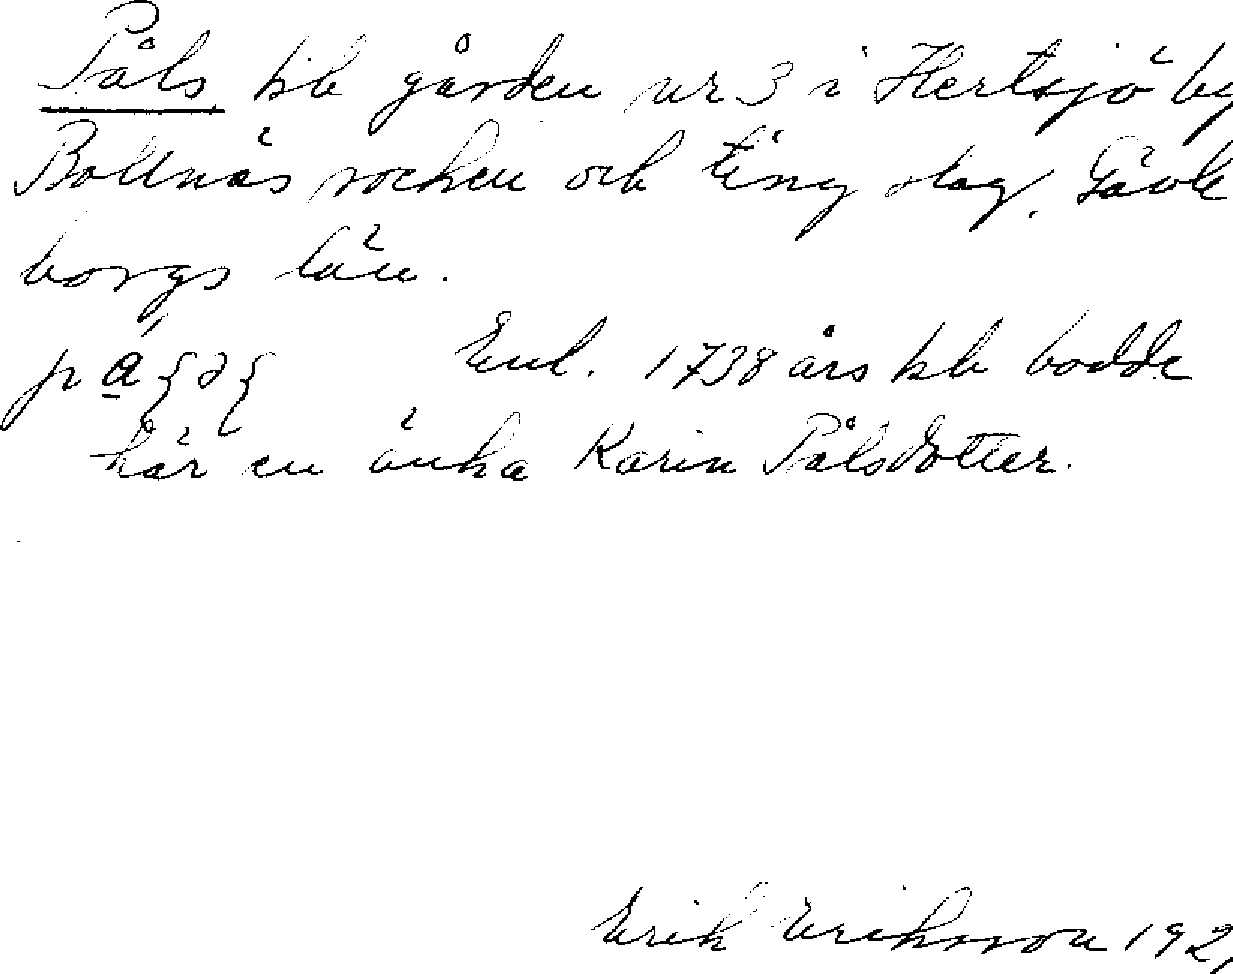 Påls kb gården nr 3 i Hertsjö by
Bollnäs socken och tingslag. Gävle
borgs län.
Enl. 1738 års kb bodde
här en änka Karin Pålsdotter.
Erik Eriksson 192